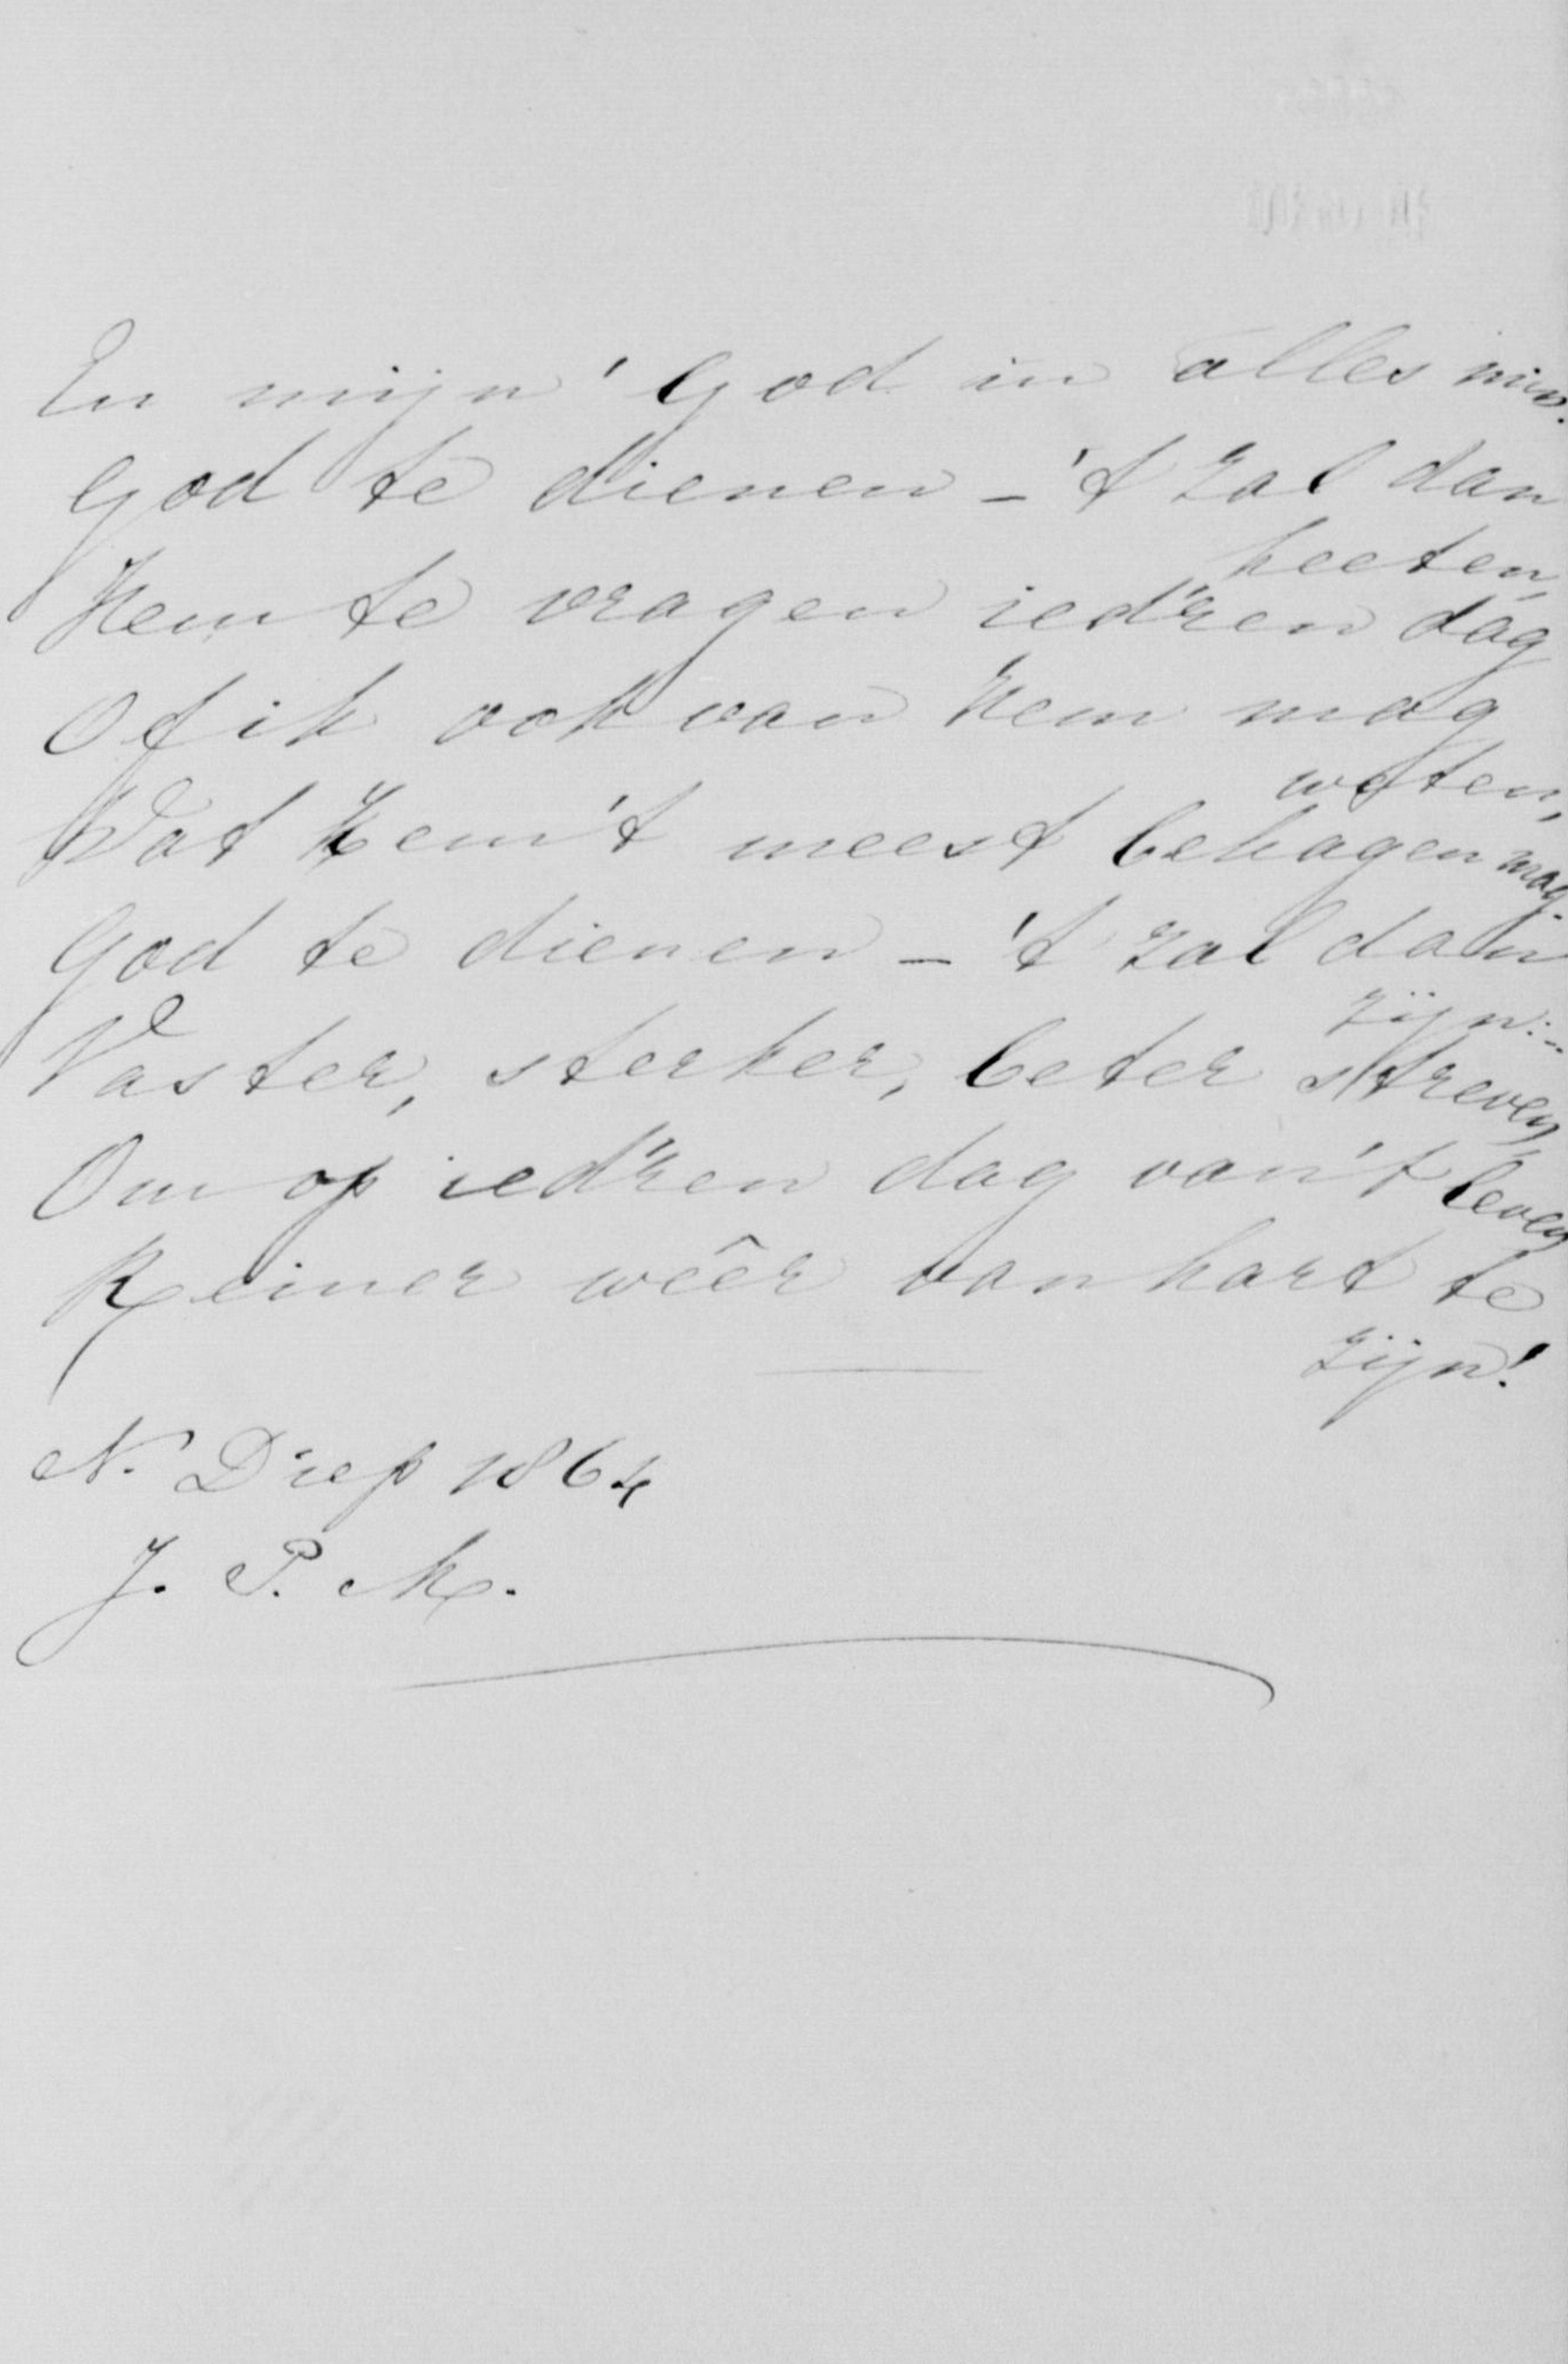 En mijn' God in alles min.
God te dienen – 't zal dan
heeten,
Hem te vragen ied'ren dag
Of ik ook van Hem mag
weten,
Wat Hem 't meest behagen mag.
God te dienen – 't zal dan
zijn:–
Vaster, sterker, beter streven,
Om op ied'ren dag van 't leven
Reiner wêer van hart te
zijn!
N. Diep 1864
J. P. M.